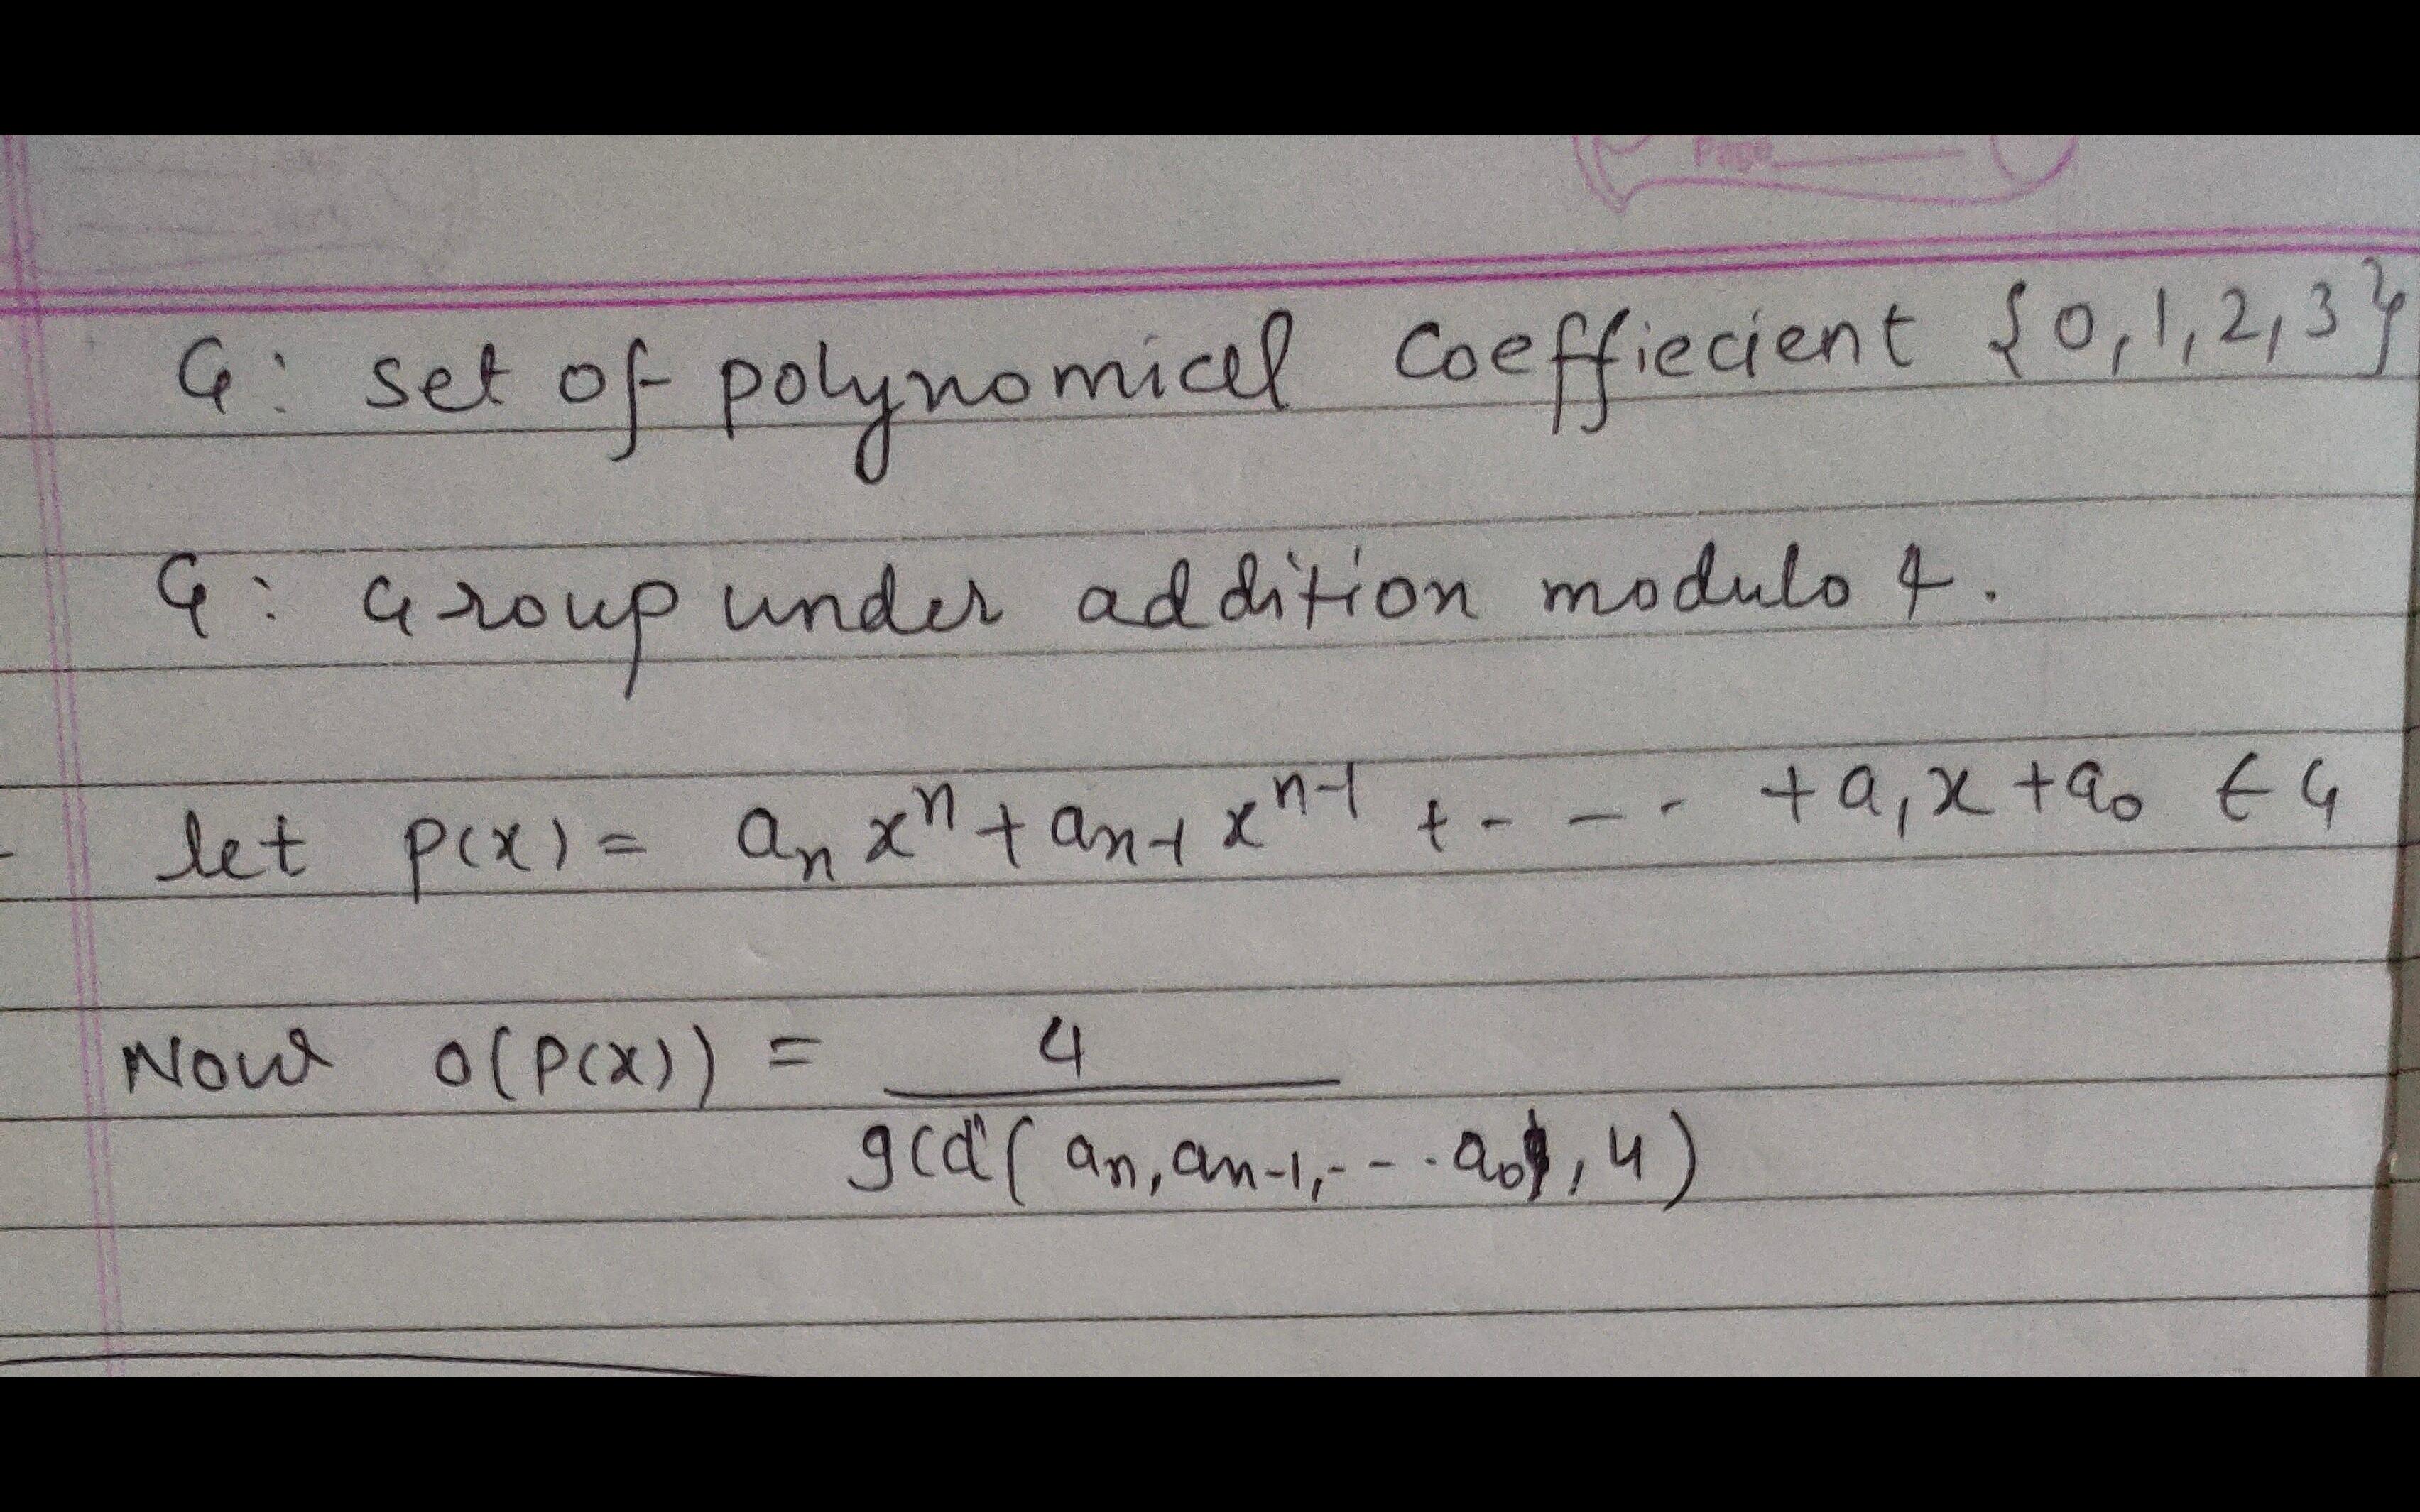 Page
G: set of polynomical coeffiecient {0,1,2,3}
G: Group under addition modulo 4.
let p(x) = aₙxⁿ + aₙ₋₁xⁿ⁻¹ + - - - + a₁x + a₀ ∈ G
Now o(p(x)) = 4
gcd(aₙ, aₙ₋₁, - - - a₀, 4)